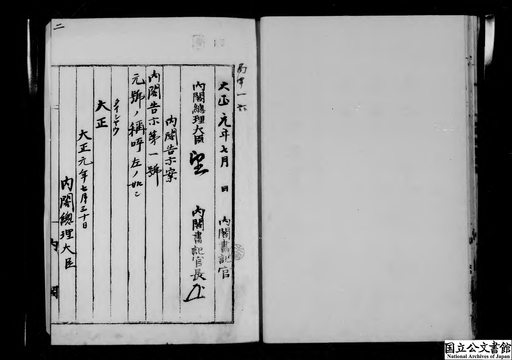 二
大正元年七月　日
内閣書記官
内閣総理大臣
内閣書記官長
内閣告示案
内閣告示第一號
元號ノ稱呼左ノ如シ
タイシヤウ
大正
大正元年七月三十日
内閣總理大臣
内閣
国立公文書館
National Archives of Japan